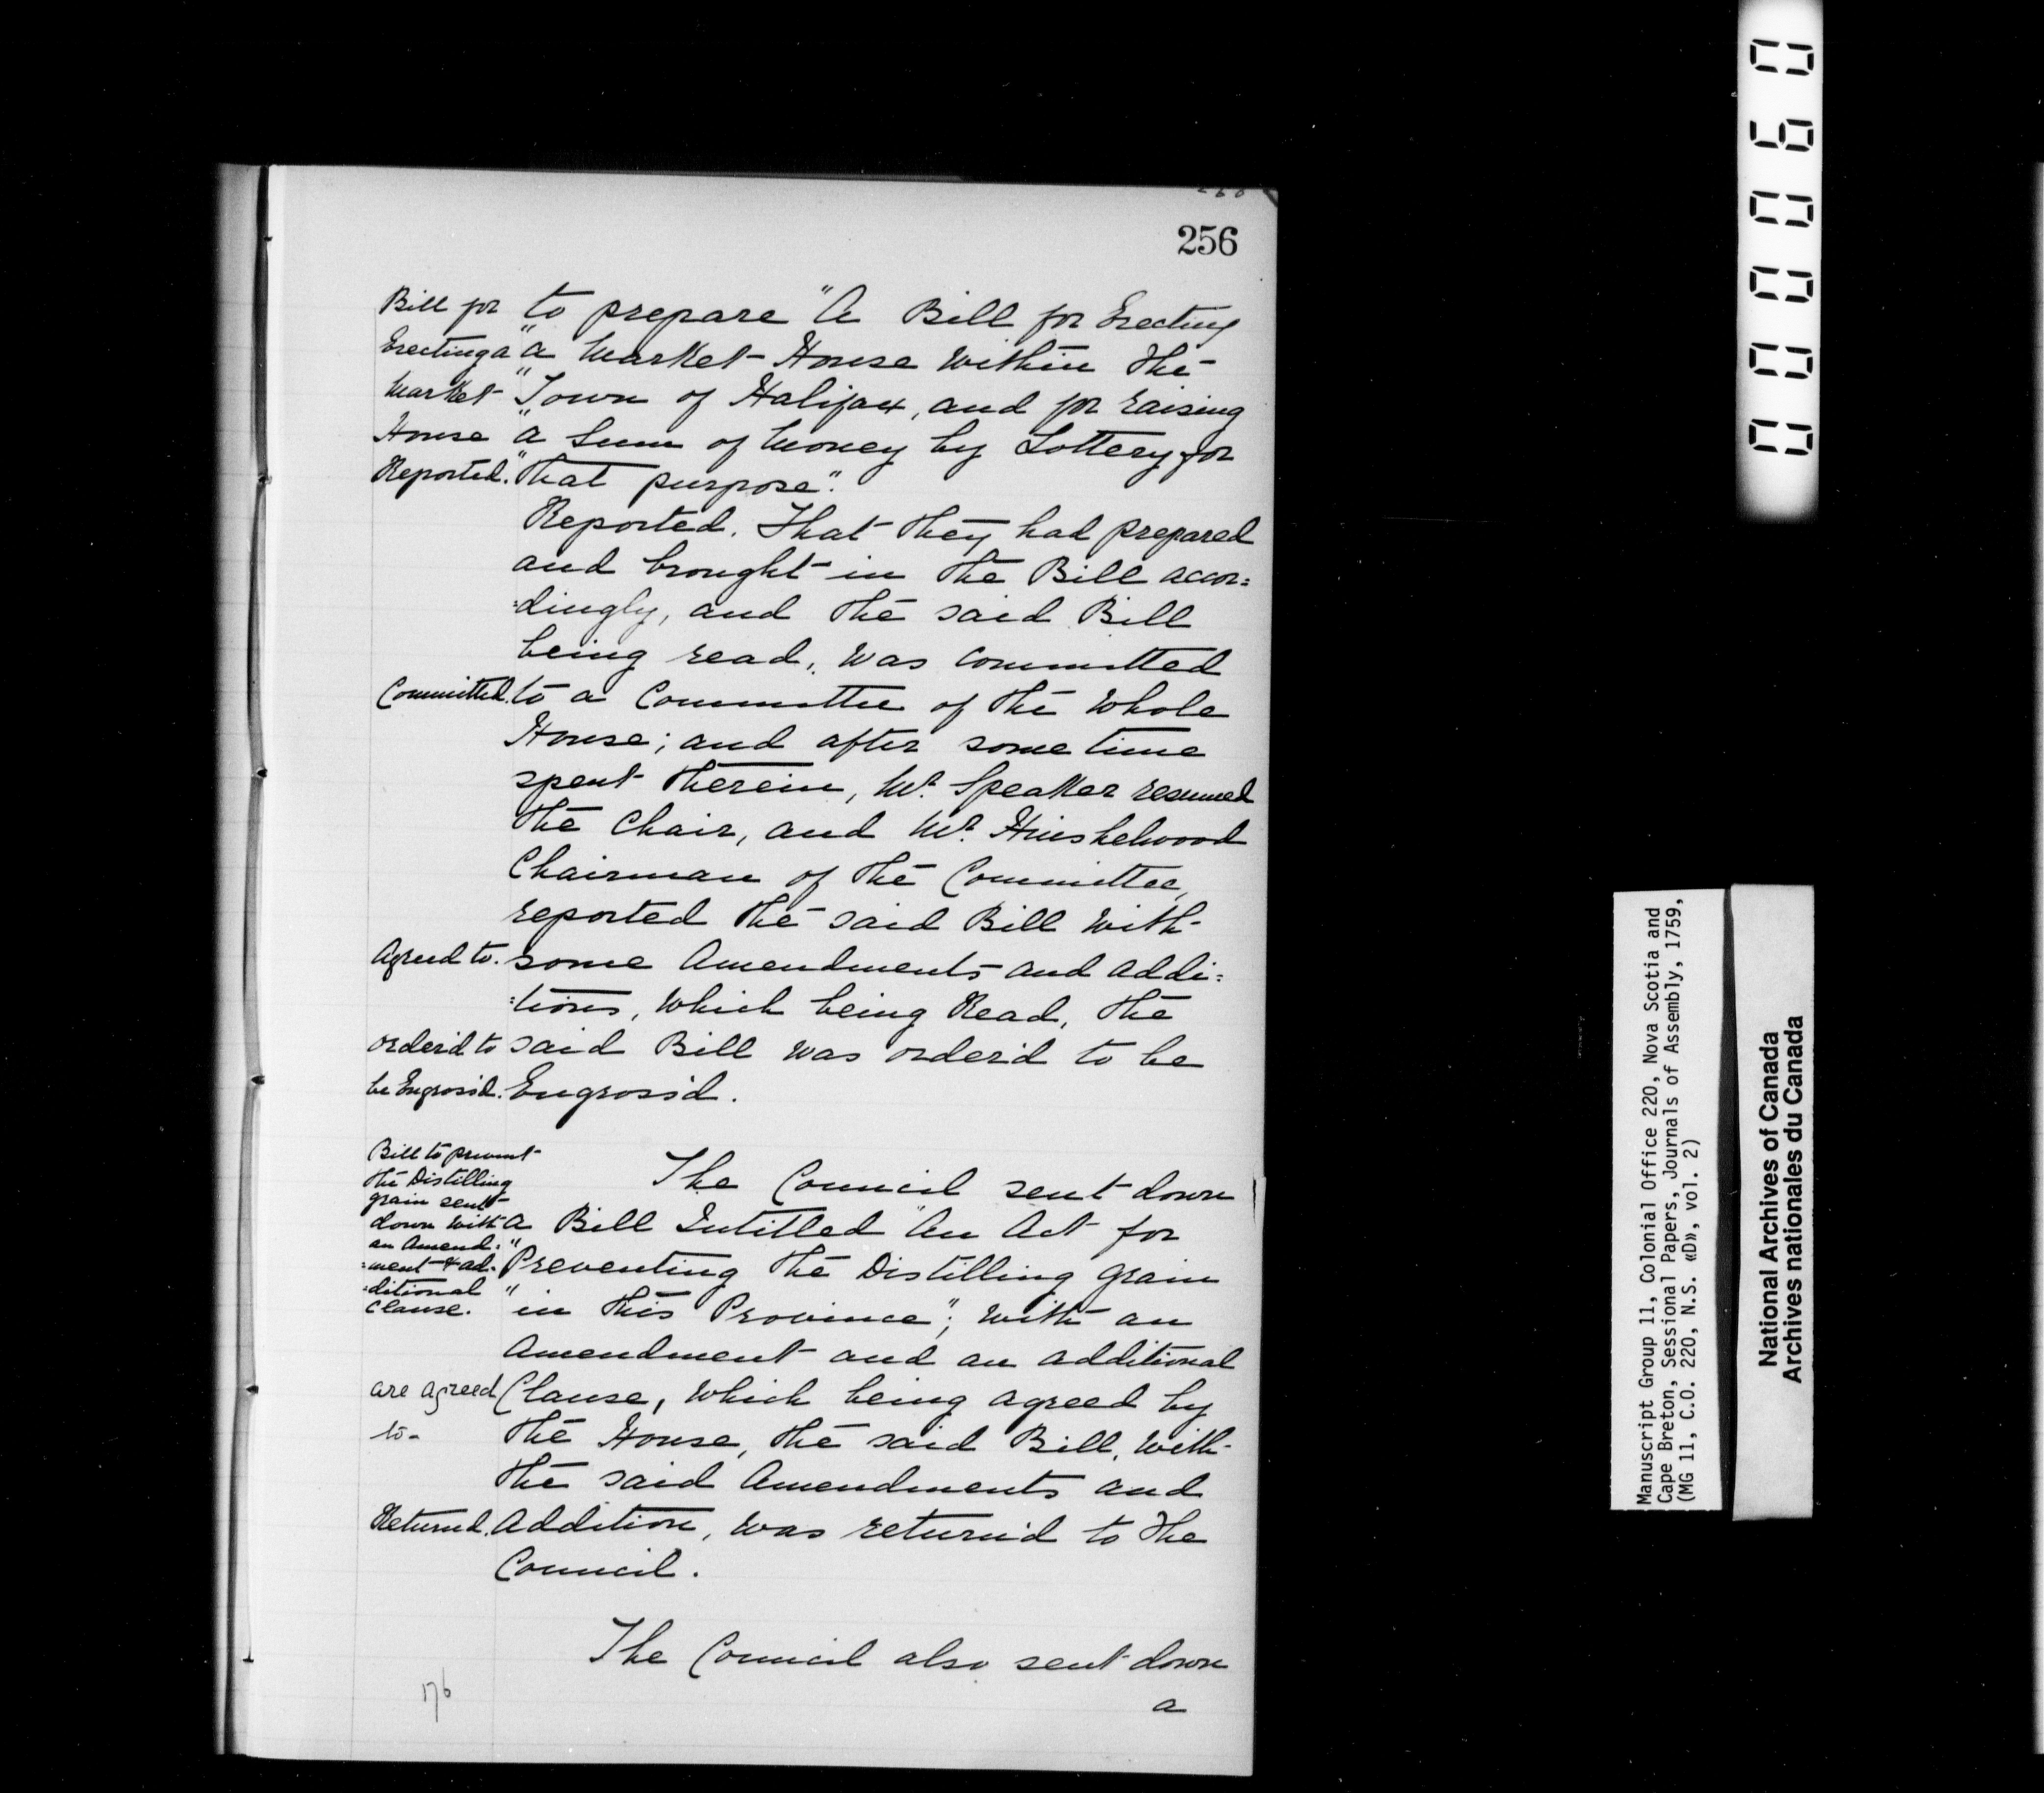 256
Bill for to prepare "A Bill for Erecting
Erecting a "a Market House within the
Market "Town of Halifax, and for raising
House "a Sum of Money by Lottery for
Reported. "that purpose".
Reported. That they had prepared
and brought in the Bill accor=
=dingly, and the said Bill
being read, was committed
Committed. to a Committee of the whole
House; and after some time
spent therein, Mr. Speaker resumed
the Chair, and Mr. Hinshelwood
Chairman of the Committee,
reported the said Bill with
Agreed to. some Amendments and addi=
=tions, which being Read, the
order'd to said Bill was order'd to be
be Engross'd. Engross'd.
Bill to prevent
the Distilling
grain sent
down with
an Amend:
=ment & ad-
=ditional
clause.
The Council sent down
a Bill Intitled "An Act for
"Preventing the Distilling grain
"in this Province"; with an
Amendment and an additional
are agreed Clause, which being agreed by
to- the House, the said Bill, with
the said Amendments and
Returnd. Addition, was return'd to the
Council.
The Council also sent down
a
176
000060
Manuscript Group 11, Colonial Office 220, Nova Scotia and
Cape Breton, Sessional Papers, Journals of Assembly, 1759,
(MG 11, C.O. 220, N.S. «D», vol. 2)
National Archives of Canada
Archives nationales du Canada